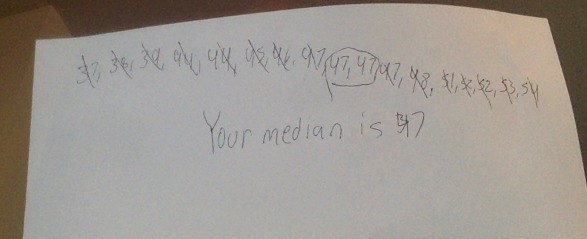 37, 38, 39, 44, 44, 45, 46, 47, 47, 47, 47, 48, 51, 52, 52, 53, 54
Your median is 47